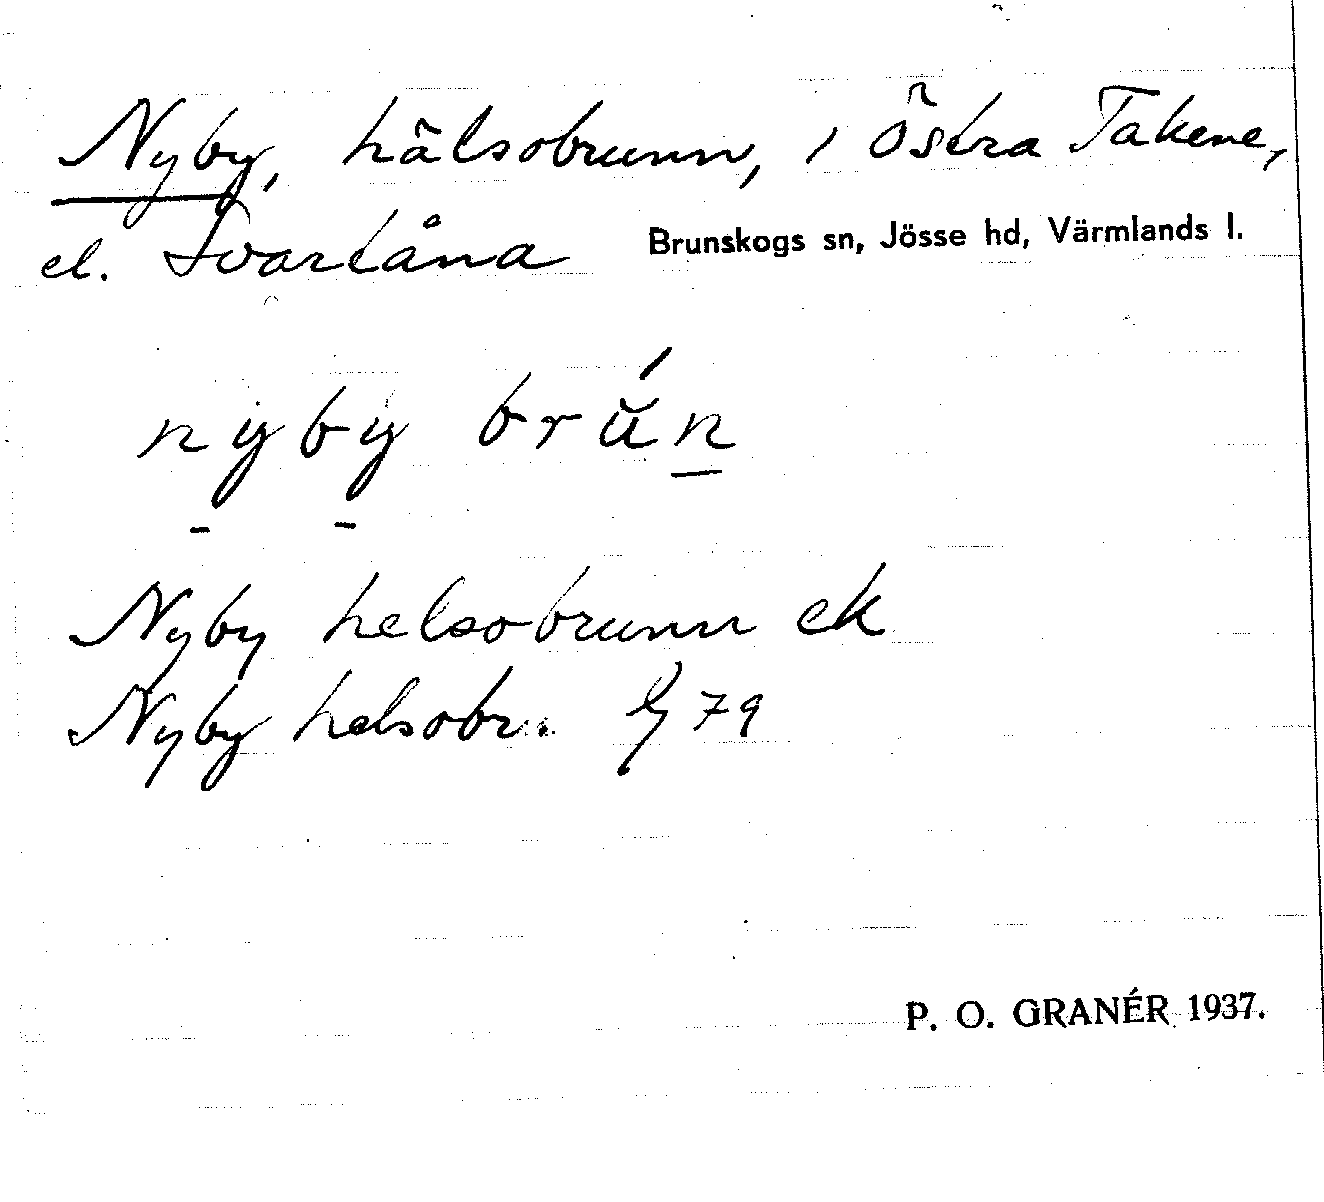 Nyby, hälsobrunn, i Östra Takene,
el. Svartåna Brunskogs sn, Jösse hd, Värmlands l.
nyby brŭ́n
Nyby helsobrunn ek
Nyby helsobr. 79
P. O. GRANÉR 1937.